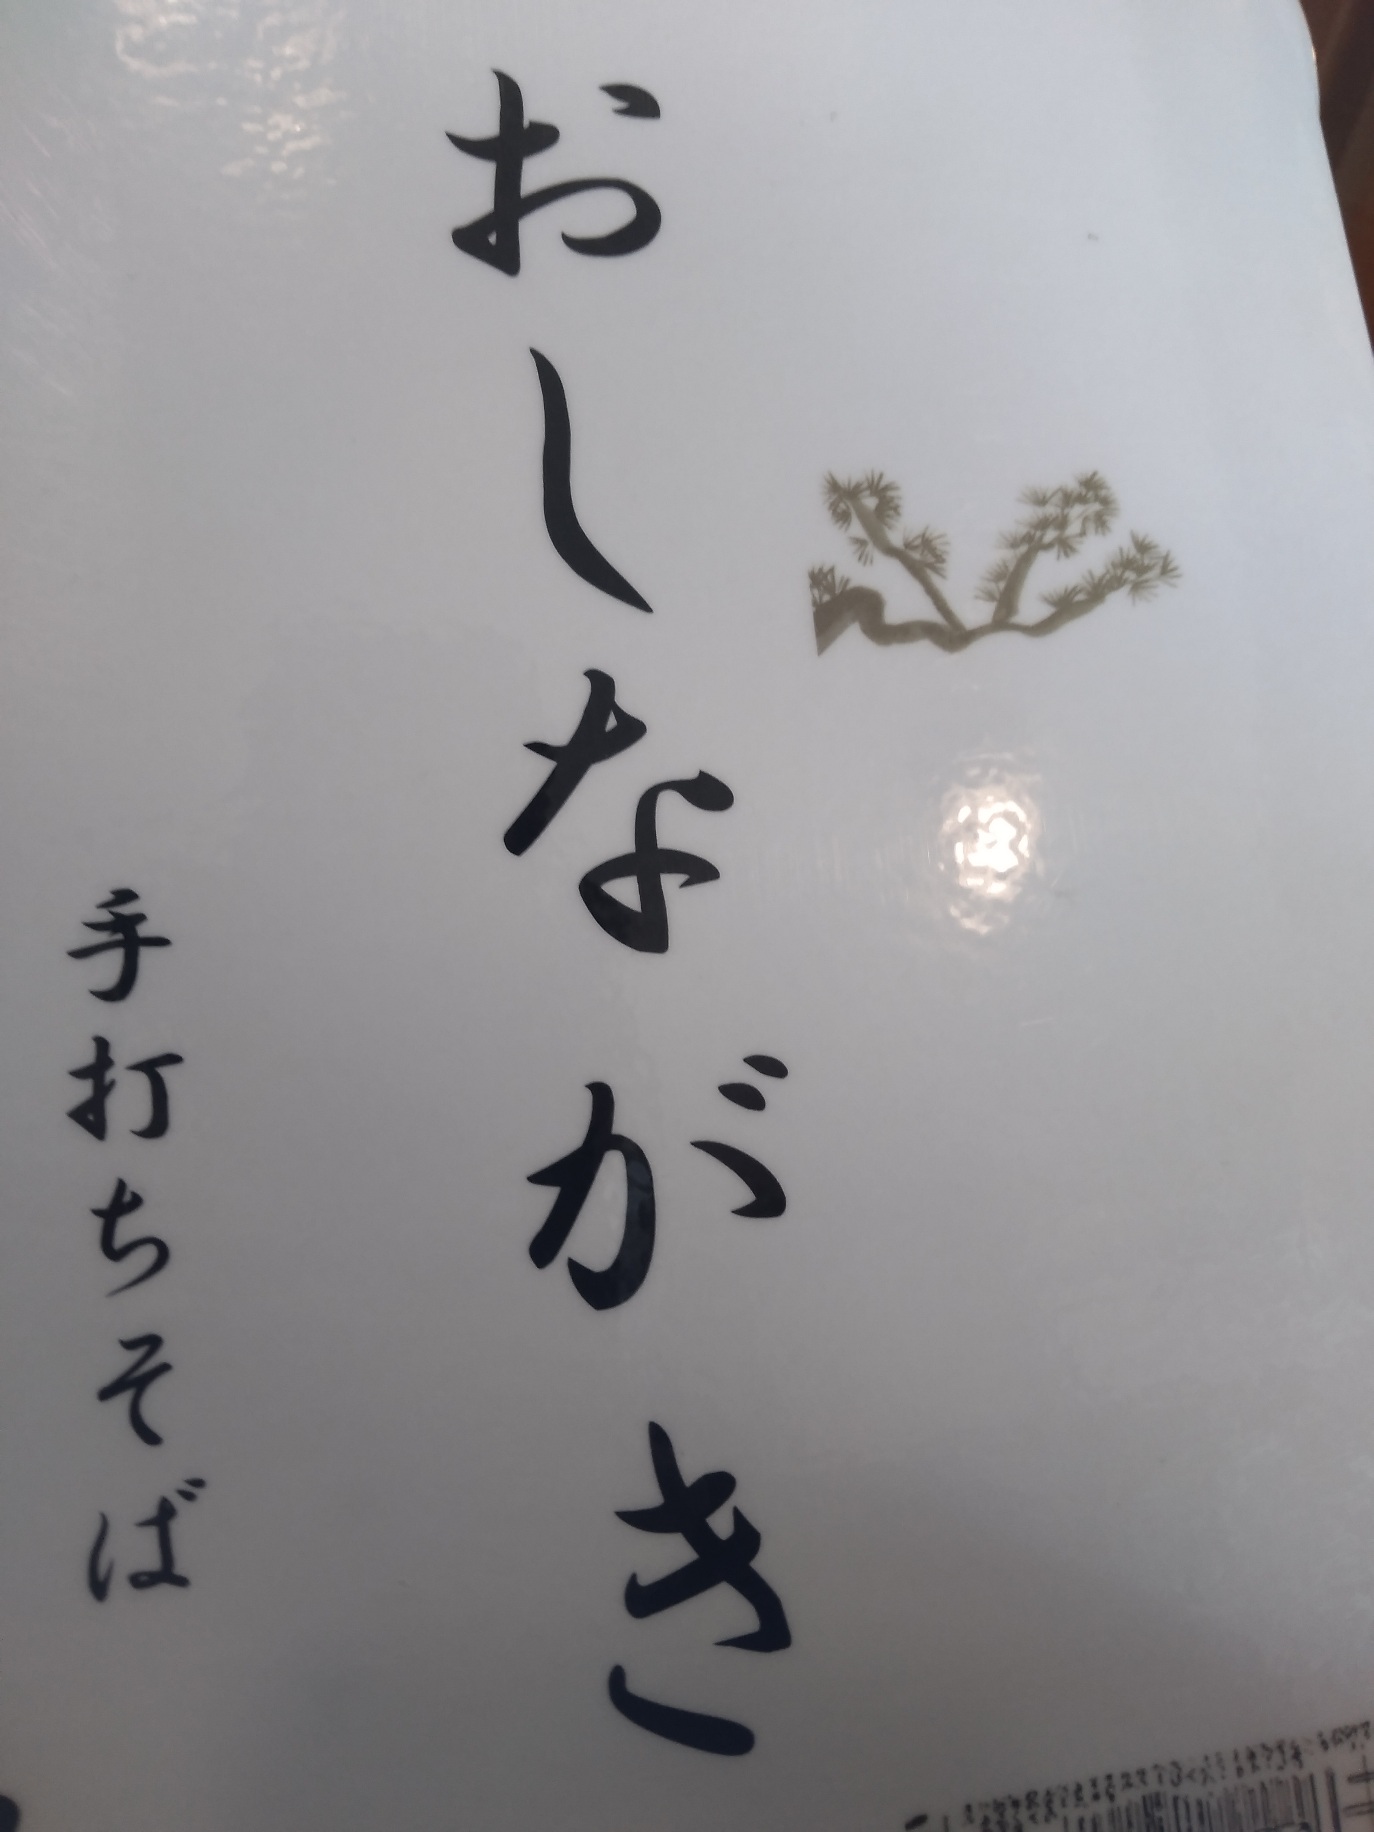 おしながき
手打ちそば